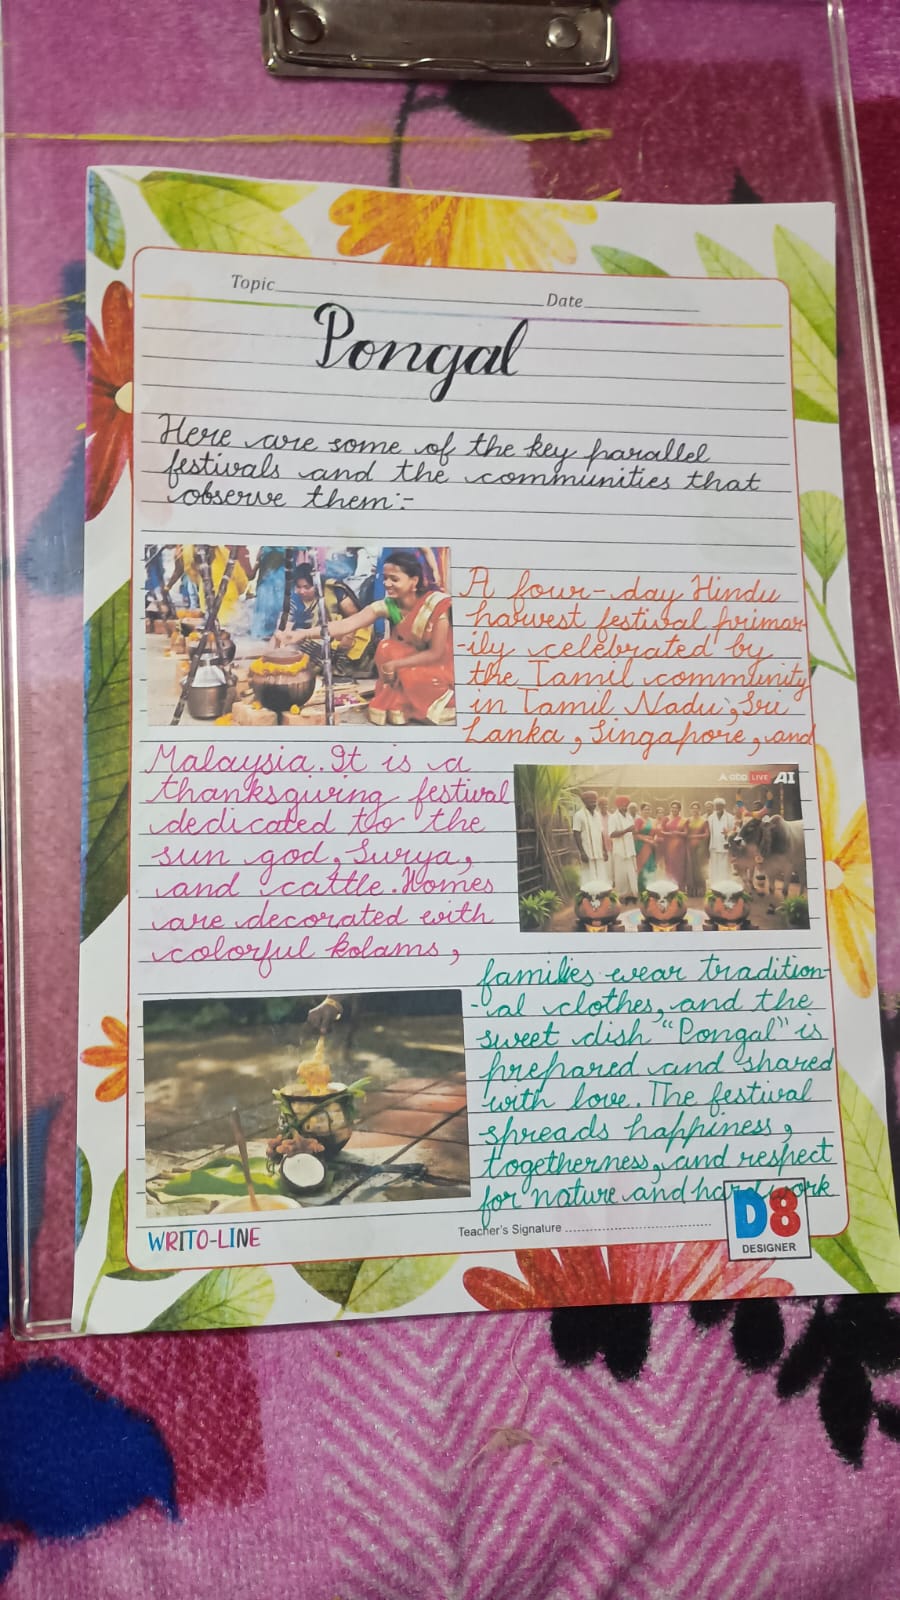 Topic Date
Pongal
Here are some of the key parallel
festivals and the communities that
observe them:-
A four-day Hindu
harvest festival primar-
-ily celebrated by
the Tamil community
in Tamil Nadu, Sri
Lanka, Singapore, and
Malaysia. It is a
thanksgiving festival
dedicated to the
sun god, Surya,
and cattle. Homes
are decorated with
colorful kolams,
LIVE AI
families wear tradition-
-al clothes, and the
sweet dish "Pongal" is
prepared and shared
with love. The festival
spreads happiness,
togetherness, and respect
for nature and hard work
WRITO-LINE
Teacher's Signature
D8
DESIGNER